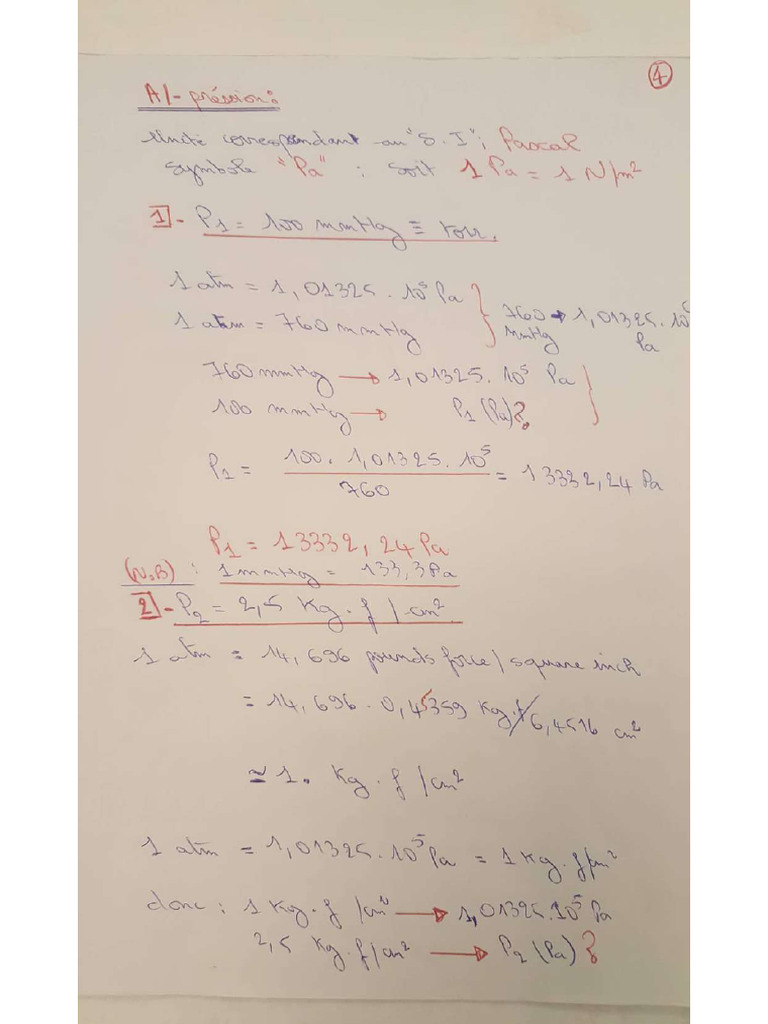 4
A/- préssion:
Unité correspondant au "S.I"; Pascal
Symbole "Pa" : soit 1 Pa = 1 N/m²
1 - P1 = 100 mmHg ≡ torr.
1 atm = 1,01325. 10⁵ Pa
1 atm = 760 mmHg
760 mmHg → 1,01325. 10⁵ Pa
760 mmHg → 1,01325. 10⁵ Pa
100 mmHg → P1 (Pa)?
P1 = 100. 1,01325. 10⁵ / 760 = 13332,24 Pa
P1 = 13332,24 Pa
(N.B) : 1 mmHg = 133,3 Pa
2 - P2 = 2,5 Kg.f /cm²
1 atm = 14,696 pounds force/ square inch
= 14,696. 0,45359 Kg.f/6,4516 cm²
≃ 1. Kg.f /cm²
1 atm = 1,01325. 10⁵ Pa = 1 Kg.f/cm²
donc : 1 Kg.f /cm² → 1,01325.10⁵ Pa
2,5 Kg.f/cm² → P2 (Pa) ?